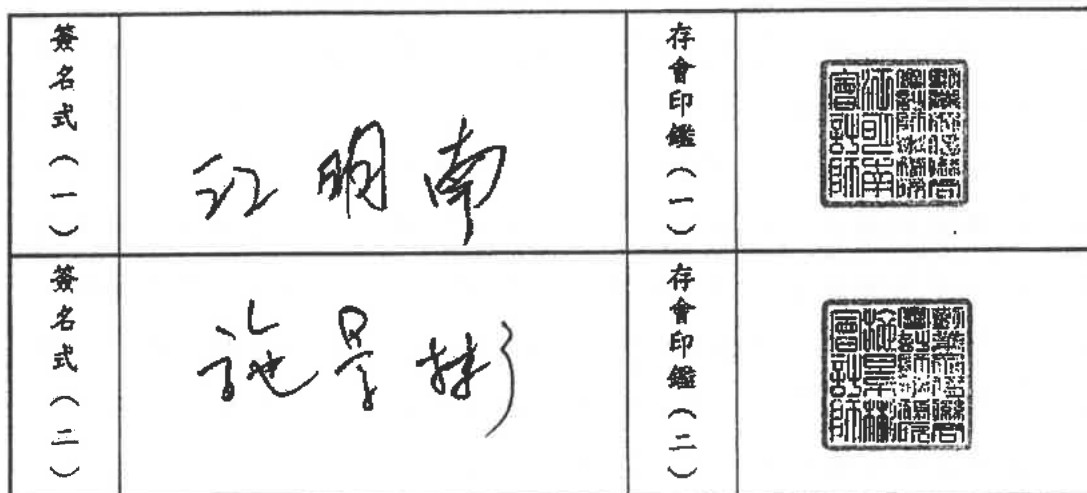 簽名式(一)
江明南
存會印鑑(一)
江明南
會計師
簽名式(二)
施景彬
存會印鑑(二)
施景彬
會計師